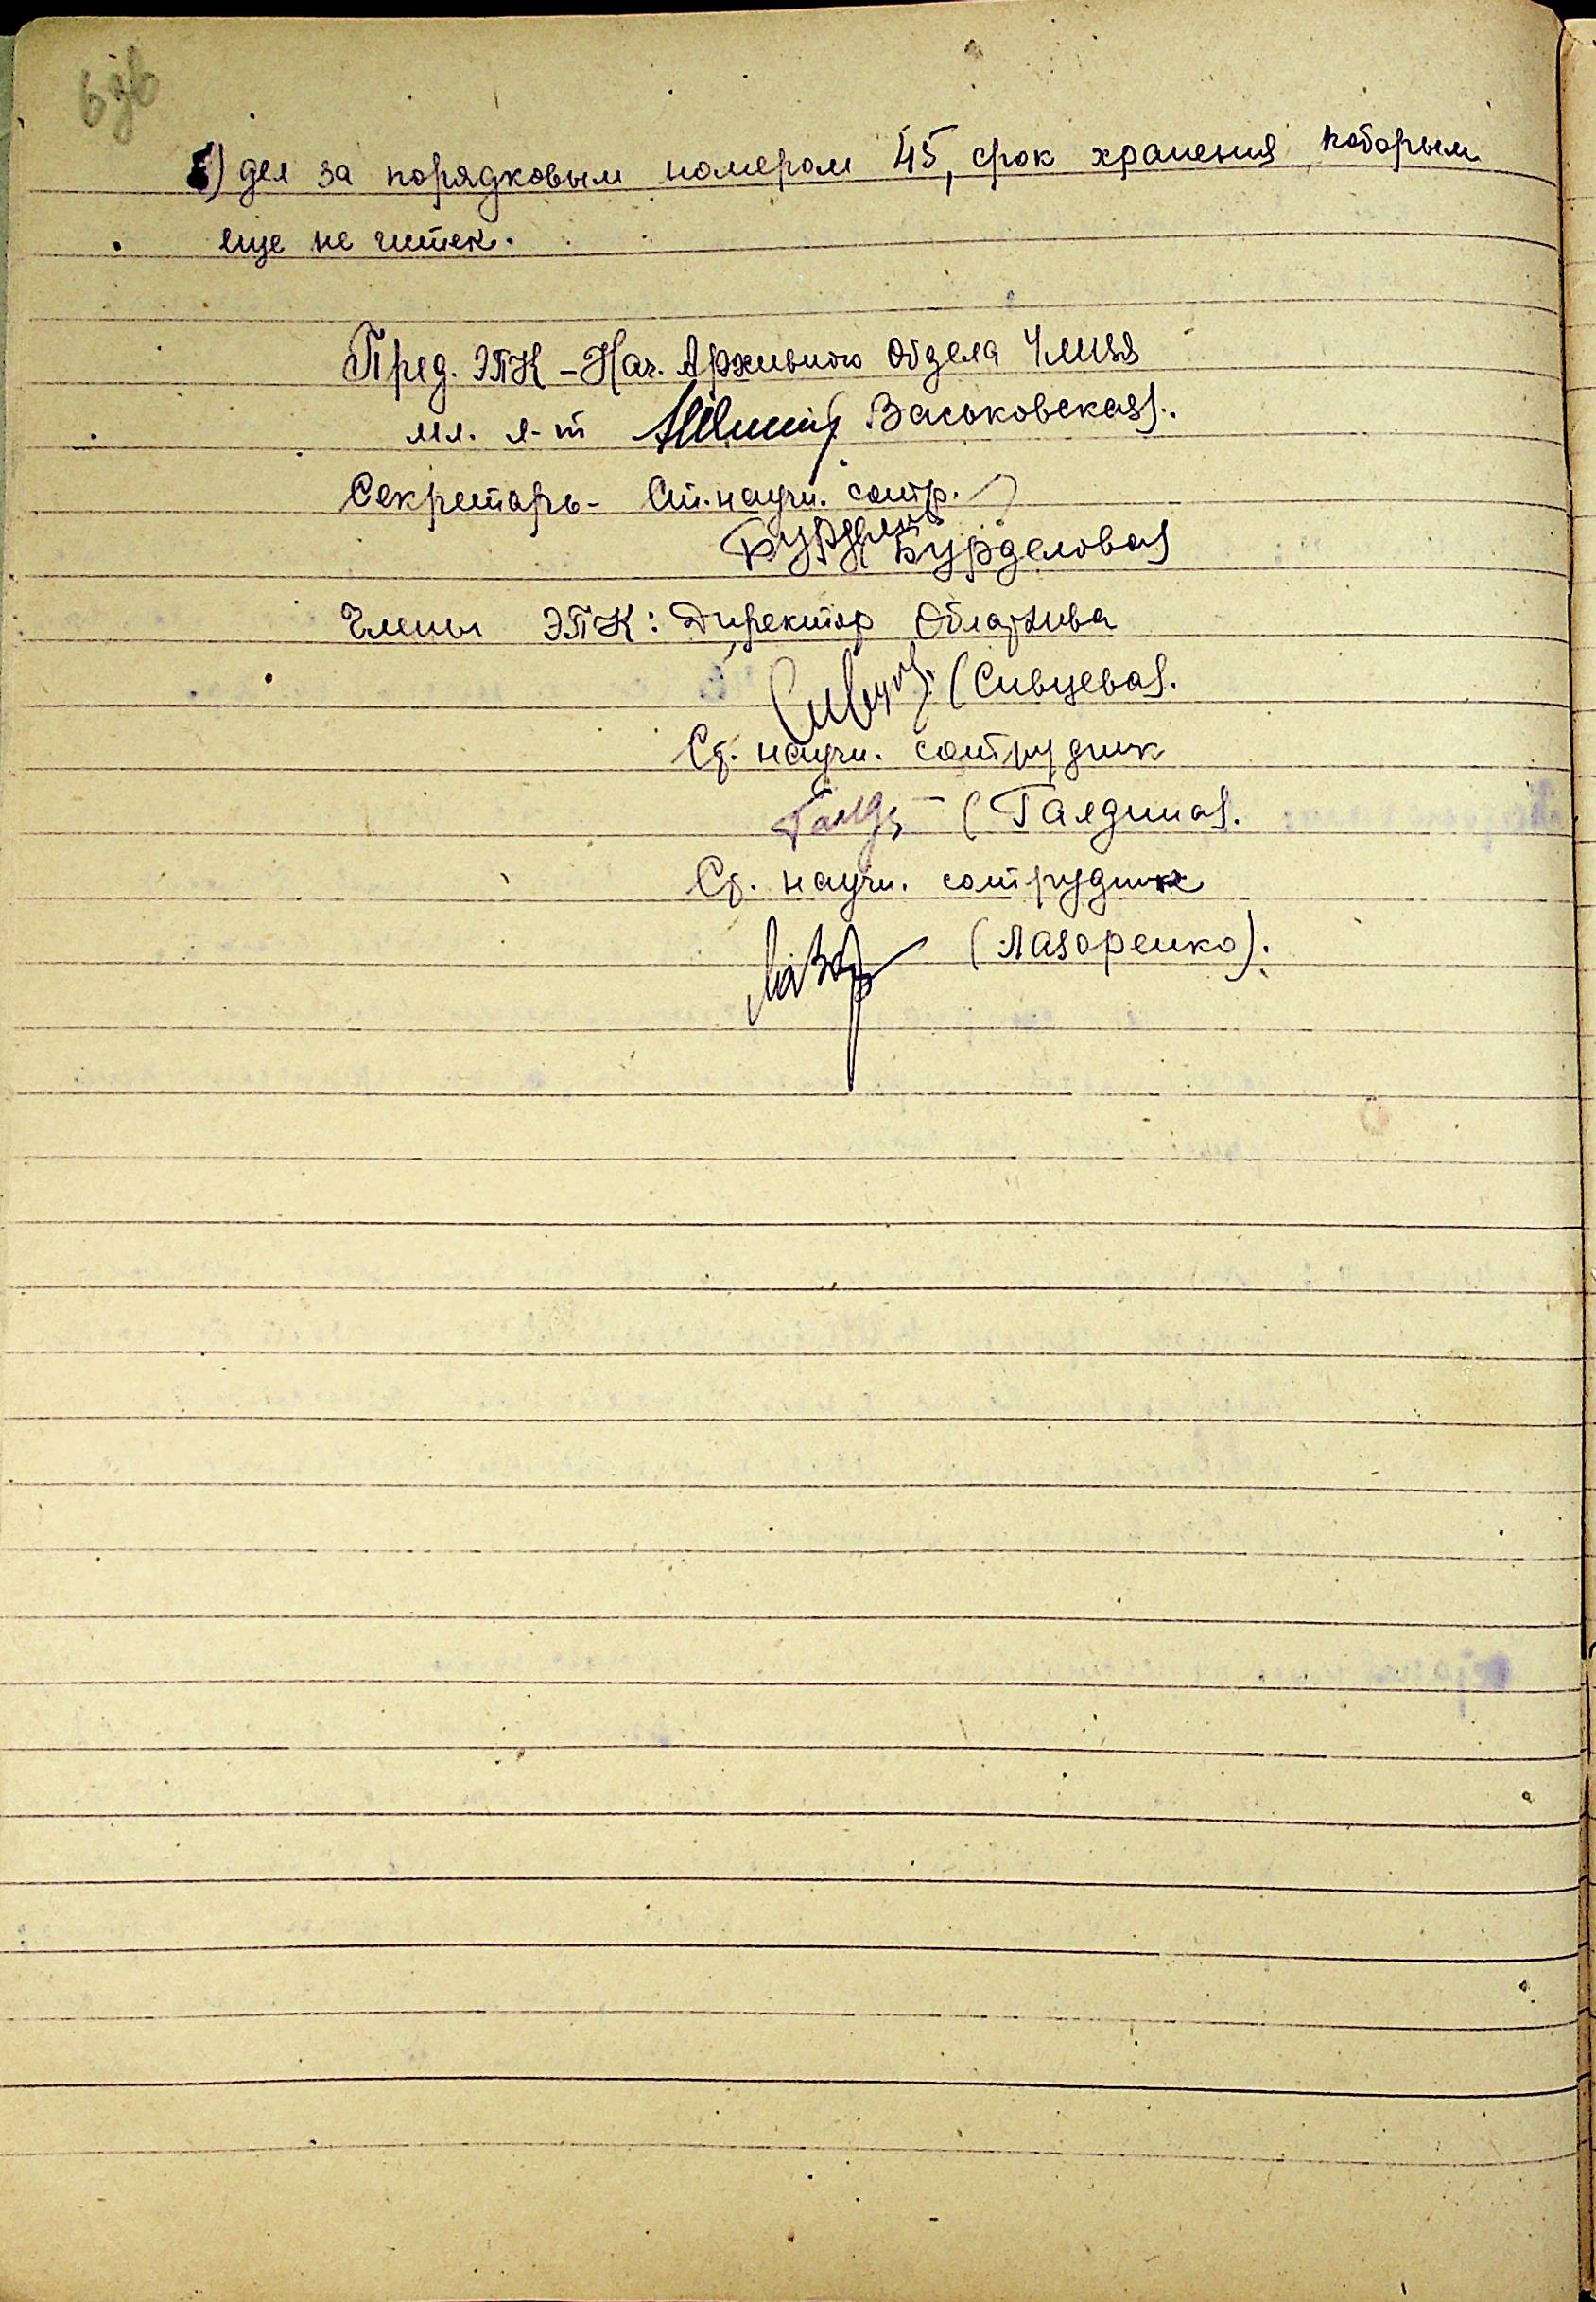 б) дел за порядковым номером 45, срок хранения которым
еще не истек.
Пред. ЭПК - Нач. Архивного Отдела УМВД
мл. л-т Васьковская).
Секретарь - Ст. научн. сотр.
Бурделова)
Члены ЭПК: Директор Облархива
(Сивцева).
Ст. научн. сотрудник
(Галдина).
Ст. научн. сотрудник
(Лазоренко).